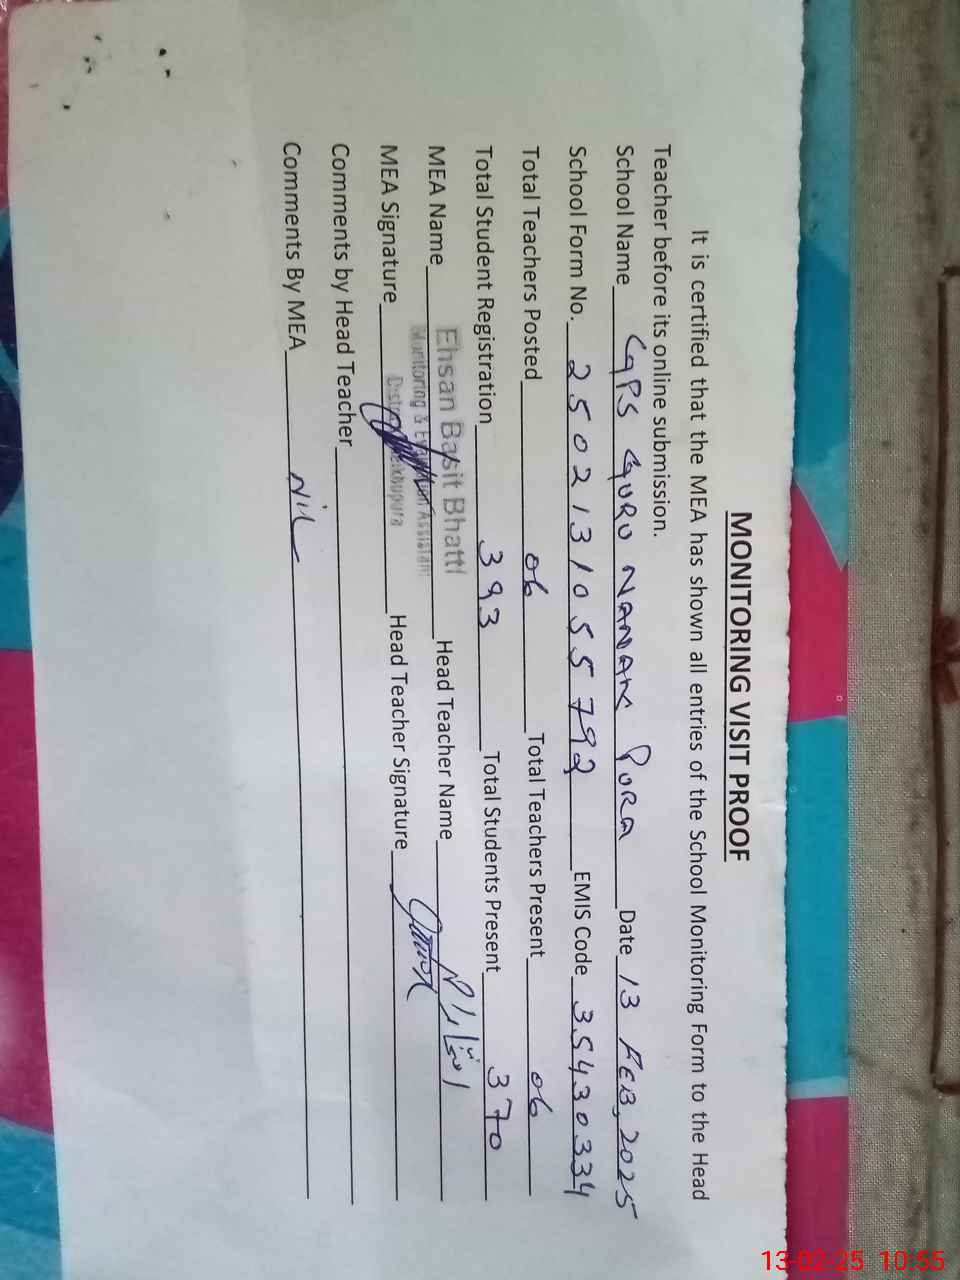 MONITORING VISIT PROOF
It is certified that the MEA has shown all entries of the School Monitoring Form to the Head
Teacher before its online submission.
School Name GPS GURU NANAK PURA Date 13 FEB, 2025
School Form No. 2502131055792 EMIS Code 35430334
Total Teachers Posted 06 Total Teachers Present 06
Total Student Registration 393 Total Students Present 370
MEA Name Ehsan Basit Bhatti Head Teacher Name
Monitoring & Evaluation Assistant
MEA Signature Head Teacher Signature
District Sheikhupura
Comments by Head Teacher
Comments By MEA Nil
13-02-25 10:55